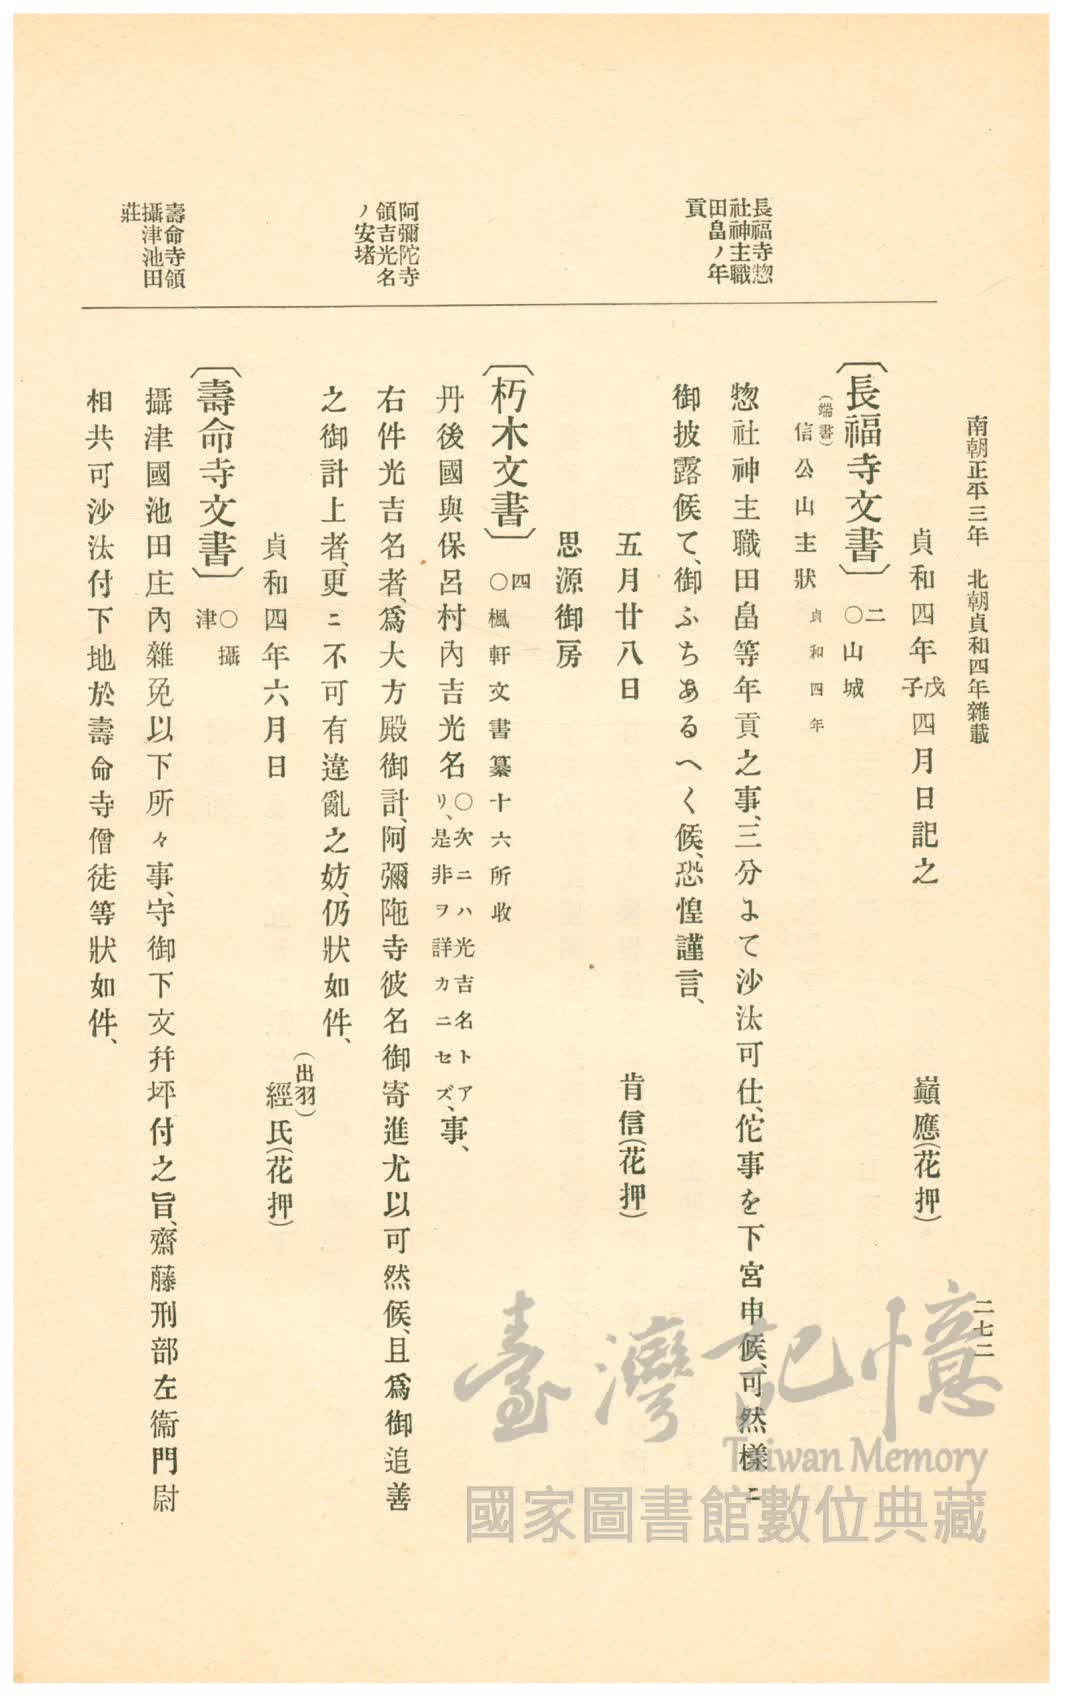 南朝正平三年　北朝貞和四年雜載
二七二
貞和四年戊子四月日記之　巓應(花押)
〔長福寺文書〕二〇山城
(端書)
信公山主狀　貞和四年
長福寺惣
社神主職
田畠ノ年
貢
惣社神主職田畠等年貢之事、三分よて沙汰可仕、佗事を下宮申候、可然樣ニ
御披露候て、御ふちあるへく候、恐惶謹言、
五月廿八日　肯信(花押)
思源御房
〔朽木文書〕四〇楓軒文書纂十六所收
阿彌陀寺
領吉光名
ノ安堵
丹後國與保呂村內吉光名〇次ニハ光吉名トアリ、是非ヲ詳カニセズ、事、
右件光吉名者、爲大方殿御計、阿彌陁寺彼名御寄進尤以可然候、且爲御追善
之御計上者、更ニ不可有違亂之妨、仍狀如件、
(出羽)
貞和四年六月日　經氏(花押)
〔壽命寺文書〕〇攝津
壽命寺領
攝津池田
莊
攝津國池田庄內雜免以下所々事、守御下文幷坪付之旨、齋藤刑部左衞門尉
相共可沙汰付下地於壽命寺僧徒等狀如件、
臺灣記憶
Taiwan Memory
國家圖書館數位典藏